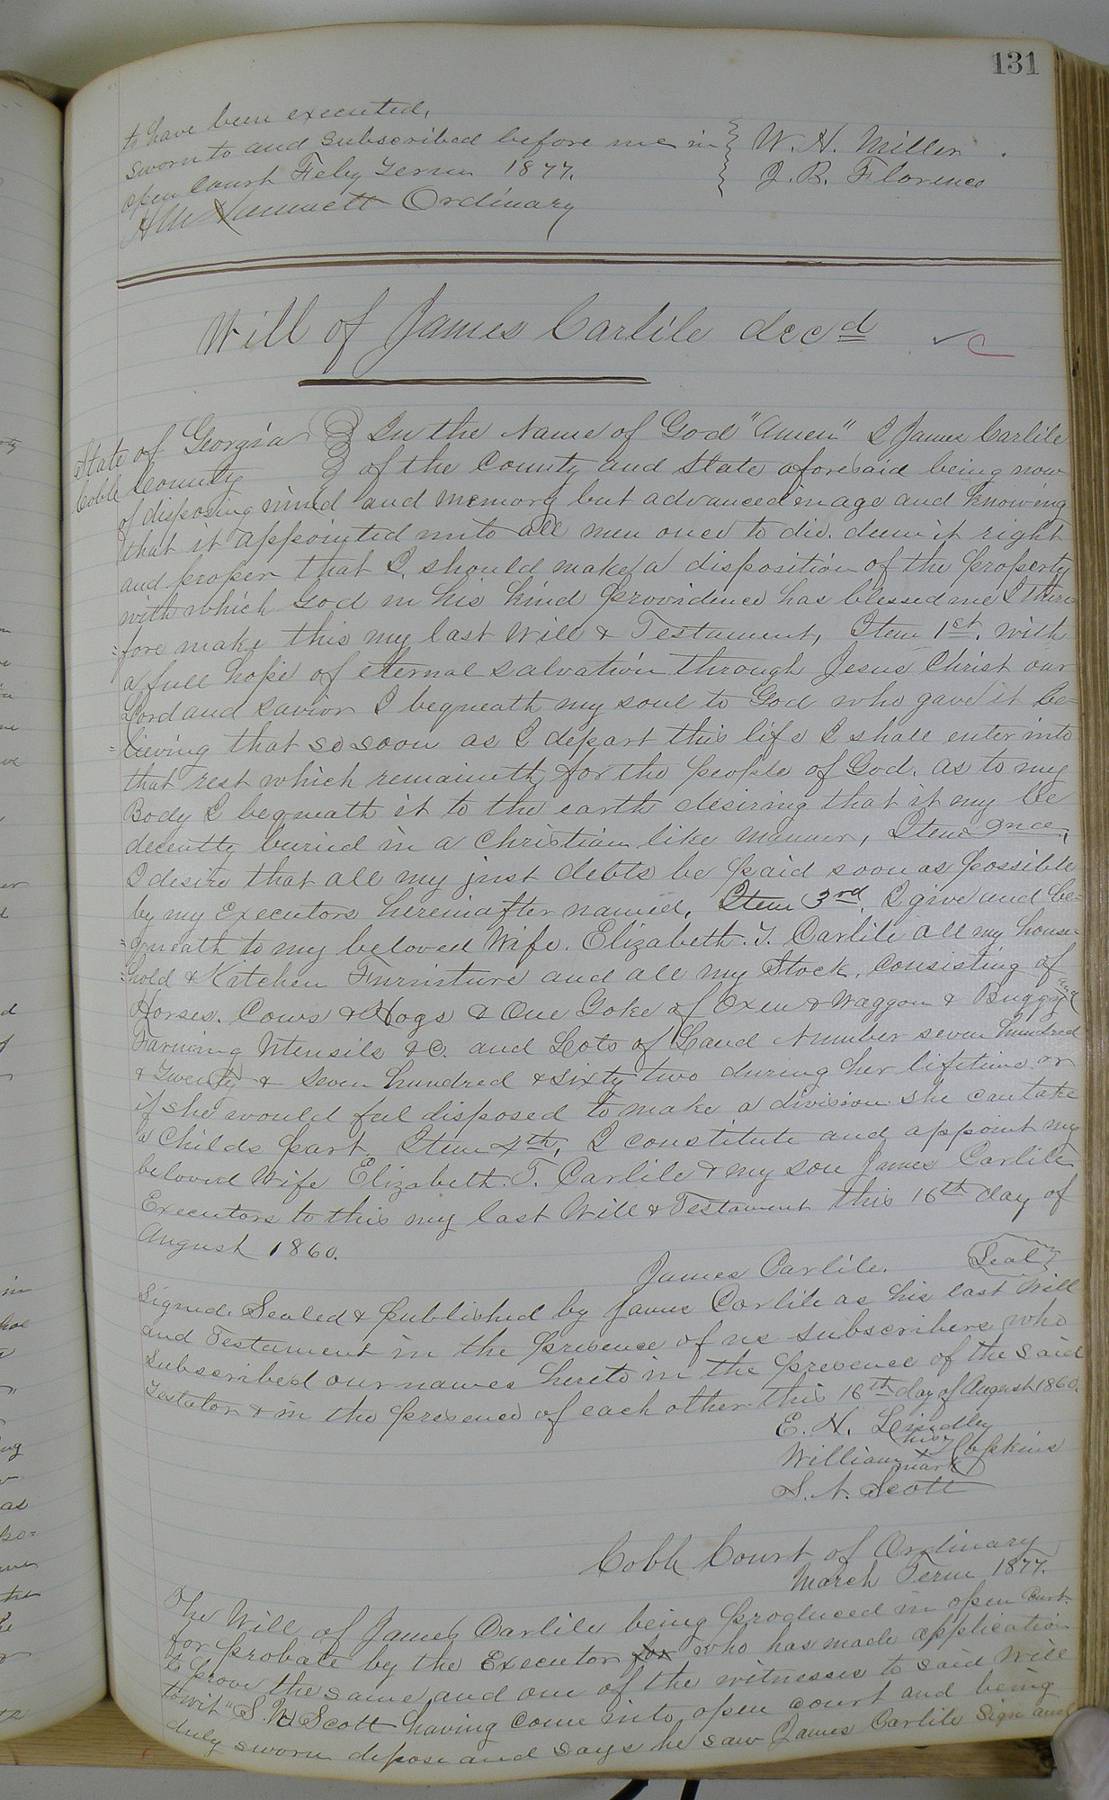 131
to have been executed,
sworn to and subscribed before me in W. H. Miller
open Court Feby Term 1877. J. B. Florence
Ordinary
Will of James Carlile decd
State of Georgia In the Name of God "Amen" I James Carlile
Cobb County of the County and State aforesaid being now
of disposing mind and memory but advanced in age and knowing
that it appointed unto all men once to die. deem it right
and proper that I, should make a disposition of the property
with which God in his kind Providence has blessed me I there
=fore make this my last Will & Testament, Item 1st. with
a full hope of eternal salvation through Jesus Christ our
Lord and Savior I bequeath my soul to God who gave it be-
=lieving that so soon as I depart this life I shall enter into
that rest which remaineth for the people of God. as to my
Body I bequeath it to the earth desiring that it my be
decently buried in a Christian like manner, Item 2nd,
I desire that all my just debts be paid soon as possible
by my Executors hereinafter named, Item 3rd. I give and be=
=queath to my beloved Wife. Elizabeth. T. Carlile all my house
=hold & Kitchen Furniture and all my Stock, consisting of
Horses. Cows & Hogs & One Yoke of Oxen & Waggon & Buggy and
Farming Utensils &c. and Lots of Land Number seven hundred
& Twenty & Seven hundred & sixty two during her lifetime or
if she would feel disposed to make a division she can take
a Childs part. Item 4th, I constitute and appoint my
beloved Wife Elizabeth. T. Carlile & my son James Carlile
Executors to this my last Will & Testament this 16th day of
August 1860.
James Carlile. Seal
Signed. Sealed & published by James Carlile as his last Will
and Testament in the presence of us subscribers who
subscribed our names hereto in the presence of the said
Testator & in the presence of each other this 16th day of August 1860.
E. H. Lindley
his
William X Hopkins
mark
S. N. Scott
Cobb Court of Ordinary
March Term 1877.
The Will of James Carlile being produced in open Court
for probate by the Executor for who has made application
to prove the same and one of the witnesses to said Will
towit "S. N. Scott having come into open court and being
duly sworn depose and says he saw James Carlile sign and